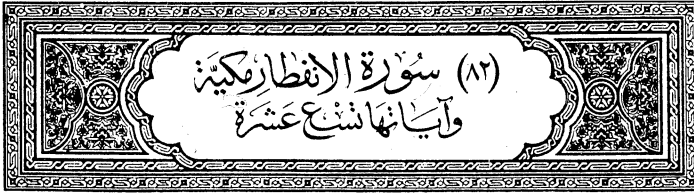 (٨٢) سُورَة الانفطار مكيَّة
وَآياتها تسْع عَشرَة